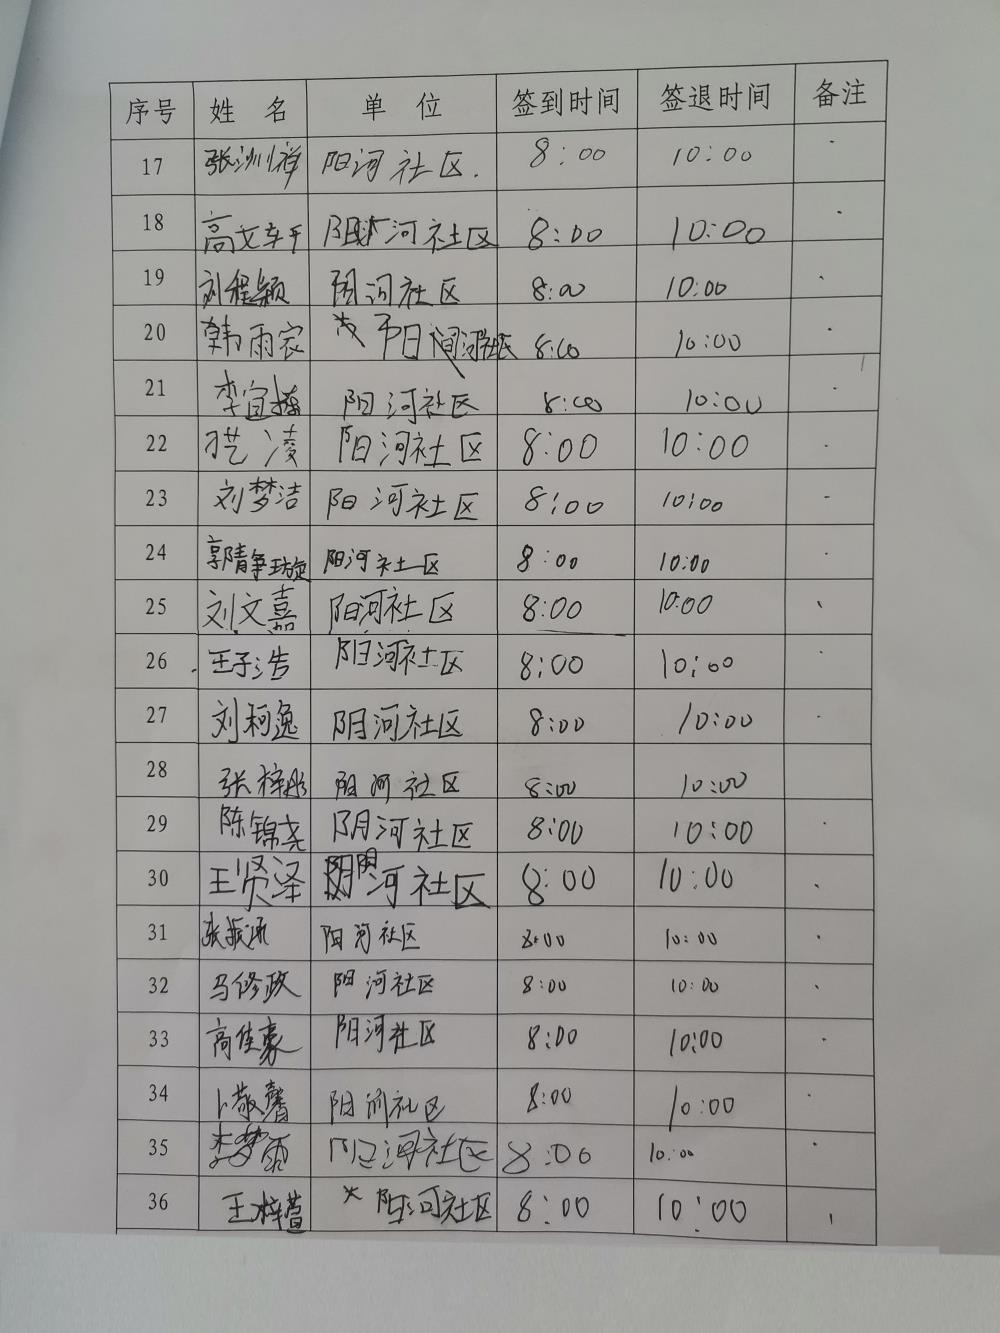 序号 姓名 单位 签到时间 签退时间 备注
17 张洲祥 阳河社区. 8:00 10:00
18 高文轩 阳河社区 8:00 10:00
19 刘程颖 阳河社区 8:00 10:00
20 韩雨家 阳河社区 8:00 10:00
21 李宜 阳河社区 8:00 10:00
22 凌 阳河社区 8:00 10:00
23 刘梦洁 阳河社区 8:00 10:00
24 郭靖 阳河社区 8:00 10:00
25 刘文嘉 阳河社区 8:00 10:00
26 王子浩 阳河社区 8:00 10:00
27 刘柯逸 阳河社区 8:00 10:00
28 张梓彤 阳河社区 8:00 10:00
29 陈锦尧 阳河社区 8:00 10:00
30 王贤泽 阳河社区 8:00 10:00
31 张振 阳河社区 8:00 10:00
32 马修政 阳河社区 8:00 10:00
33 高佳豪 阳河社区 8:00 10:00
34 卜敬馨 阳河社区 8:00 10:00
35 李梦雨 阳河社区 8:00 10:00
36 王梓萱 阳河社区 8:00 10:00